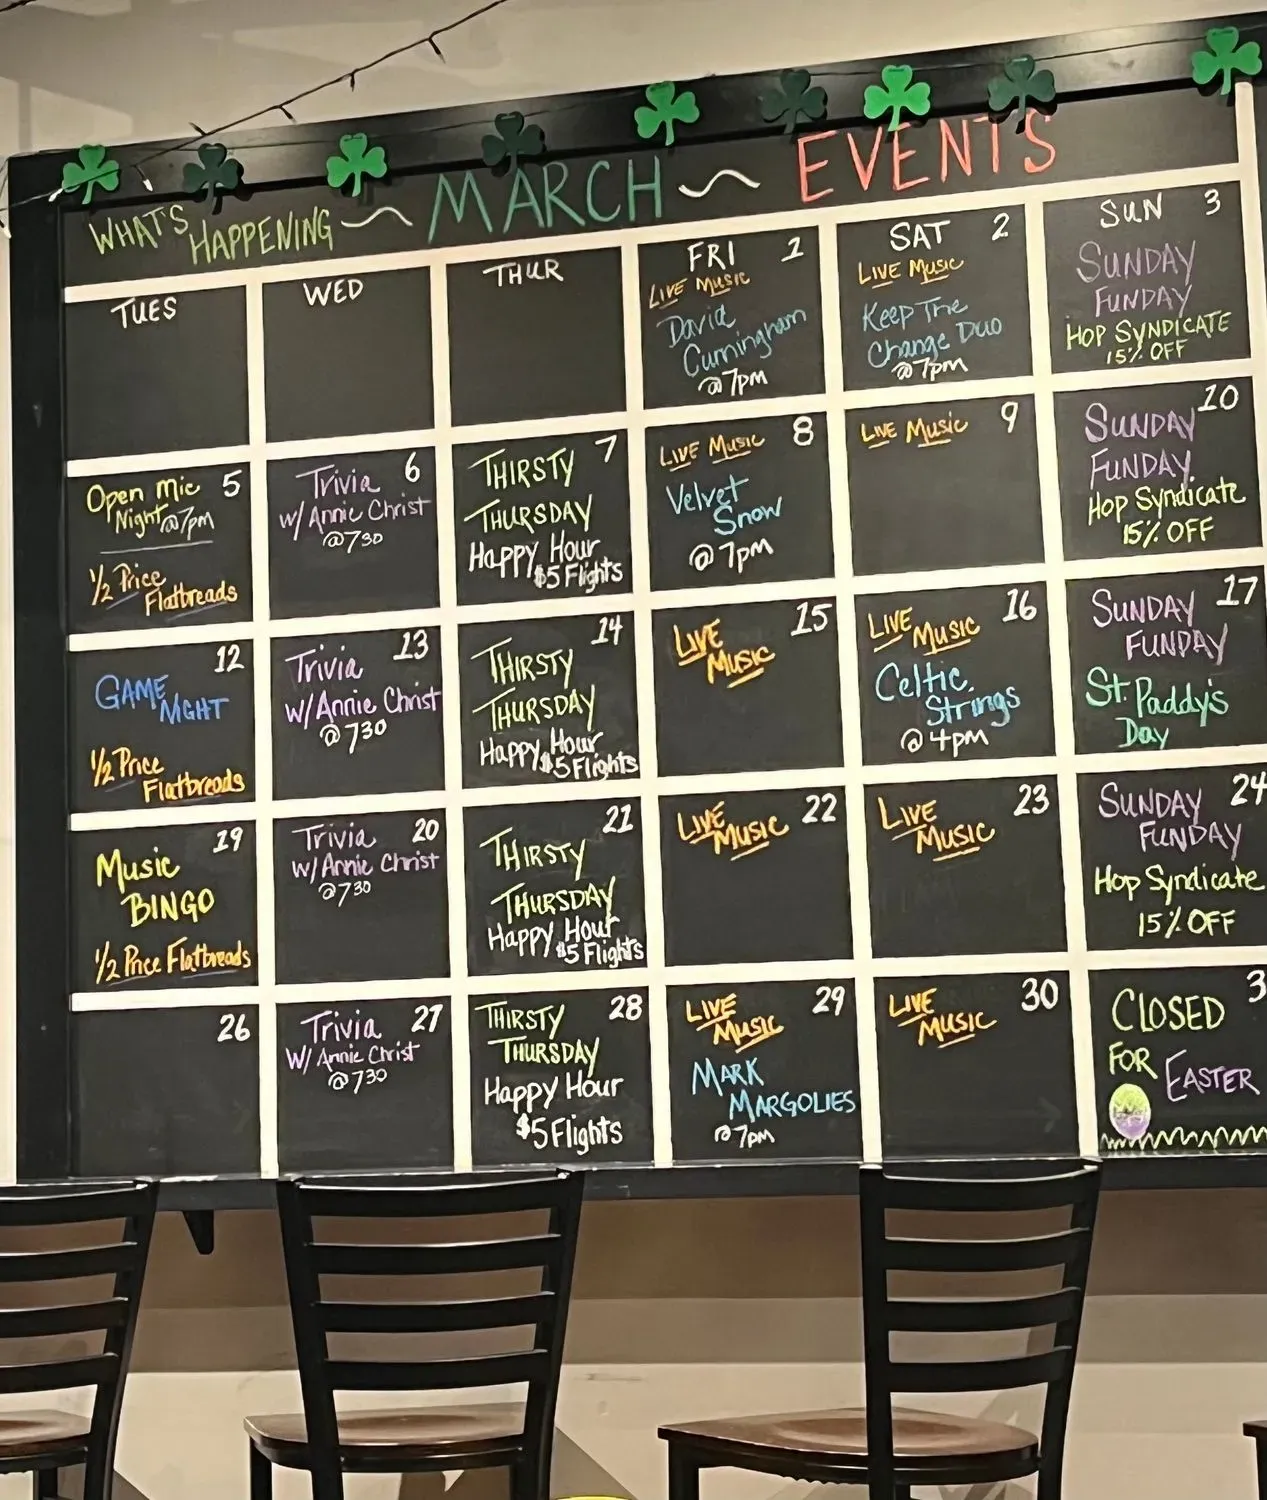 WHAT'S HAPPENING ~ MARCH ~ EVENTS
TUES
WED
THUR
FRI 1
LIVE MUSIC
David
Cunningham
@7pm
SAT 2
LIVE MUSIC
Keep The
Change Duo
@7pm
SUN 3
SUNDAY
FUNDAY
HOP SYNDICATE
15% OFF
Open Mic 5
Night @7pm
1/2 Price
Flatbreads
Trivia 6
w/ Annie Christ
@730
THIRSTY 7
THURSDAY
Happy Hour
$5 Flights
LIVE MUSIC 8
Velvet
Snow
@7pm
LIVE MUSIC 9
SUNDAY 10
FUNDAY
Hop Syndicate
15% OFF
12
GAME
NIGHT
1/2 Price
Flatbreads
Trivia 13
w/ Annie Christ
@730
THIRSTY 14
THURSDAY
Happy Hour
$5 Flights
LIVE 15
MUSIC
LIVE 16
MUSIC
Celtic
Strings
@4pm
SUNDAY 17
FUNDAY
St. Paddy's
Day
Music 19
BINGO
1/2 Price Flatbreads
Trivia 20
w/ Annie Christ
@730
THIRSTY 21
THURSDAY
Happy Hour
$5 Flights
LIVE 22
MUSIC
LIVE 23
MUSIC
SUNDAY 24
FUNDAY
Hop Syndicate
15% OFF
26
Trivia 27
W/ Annie Christ
@730
THIRSTY 28
THURSDAY
Happy Hour
$5 Flights
LIVE 29
MUSIC
MARK
MARGOLIES
@7pm
LIVE 30
MUSIC
CLOSED 3
FOR EASTER